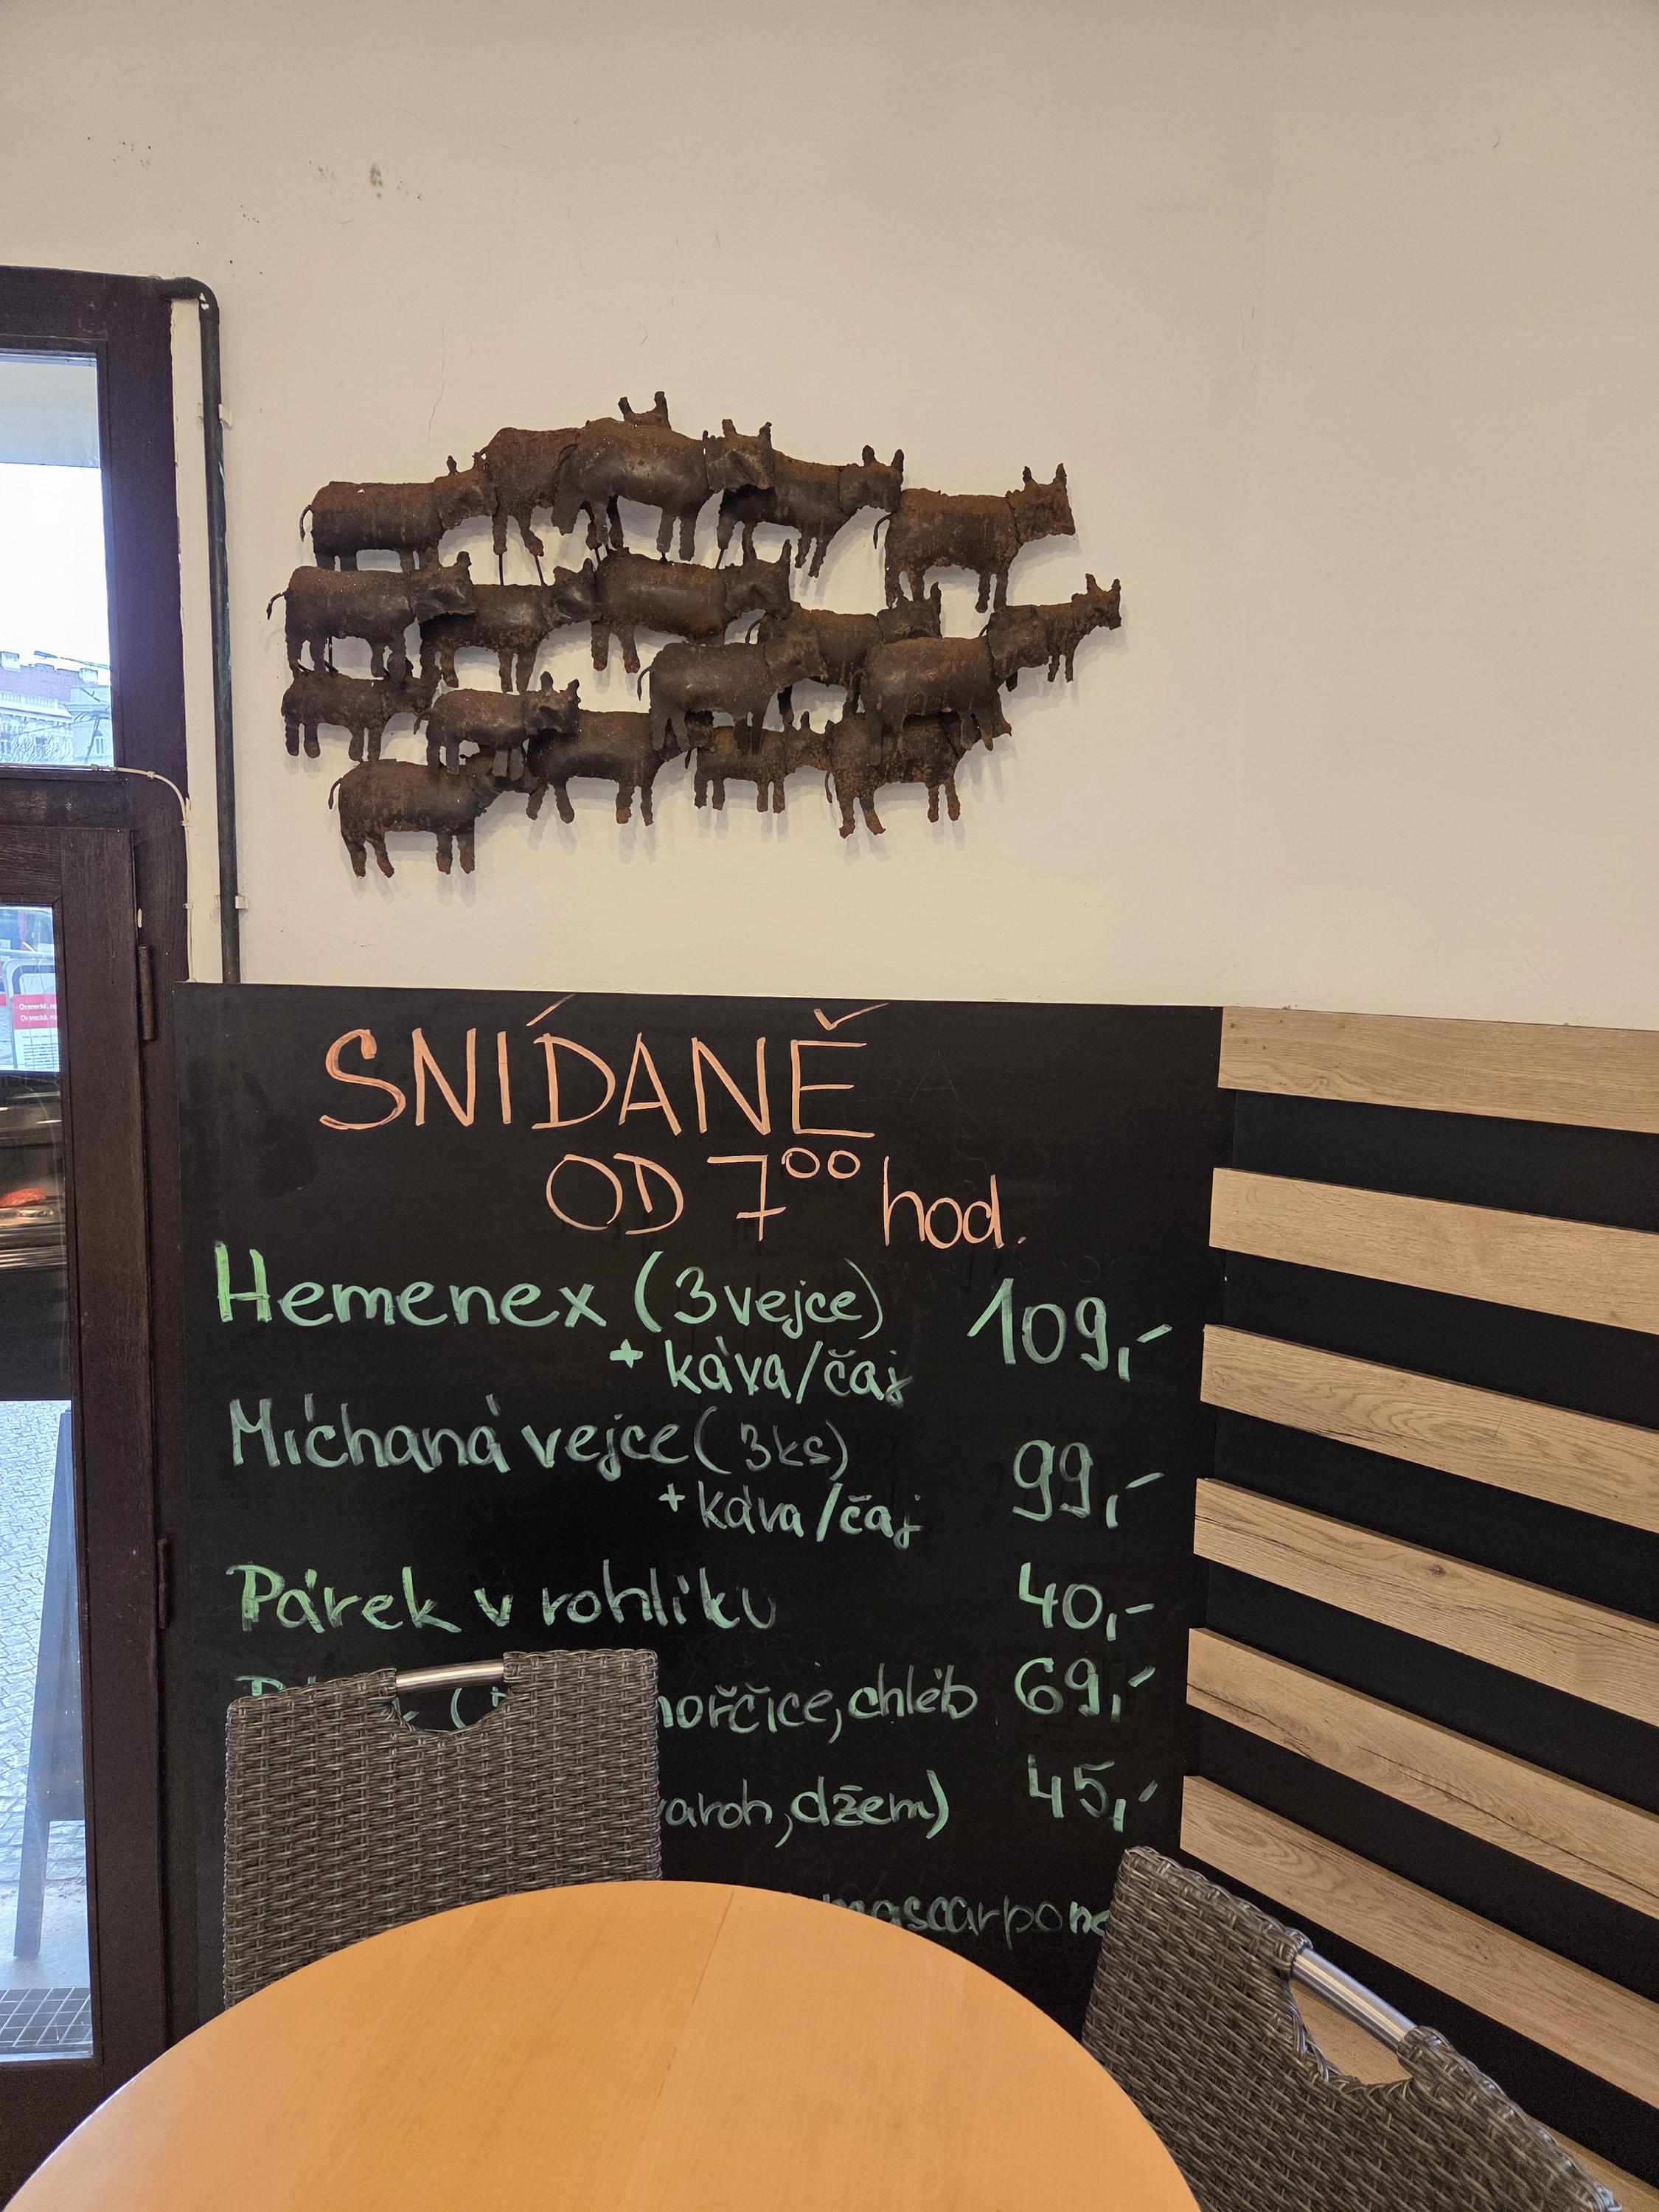 SNÍDANĚ
OD 7⁰⁰ hod.
Hemenex (3 vejce) 109,-
+ káva/čaj
Míchaná vejce (3ks) 99,-
+ káva/čaj
Párek v rohlíku 40,-
hořčice, chléb 69,-
džem) 45,-
mascarpone